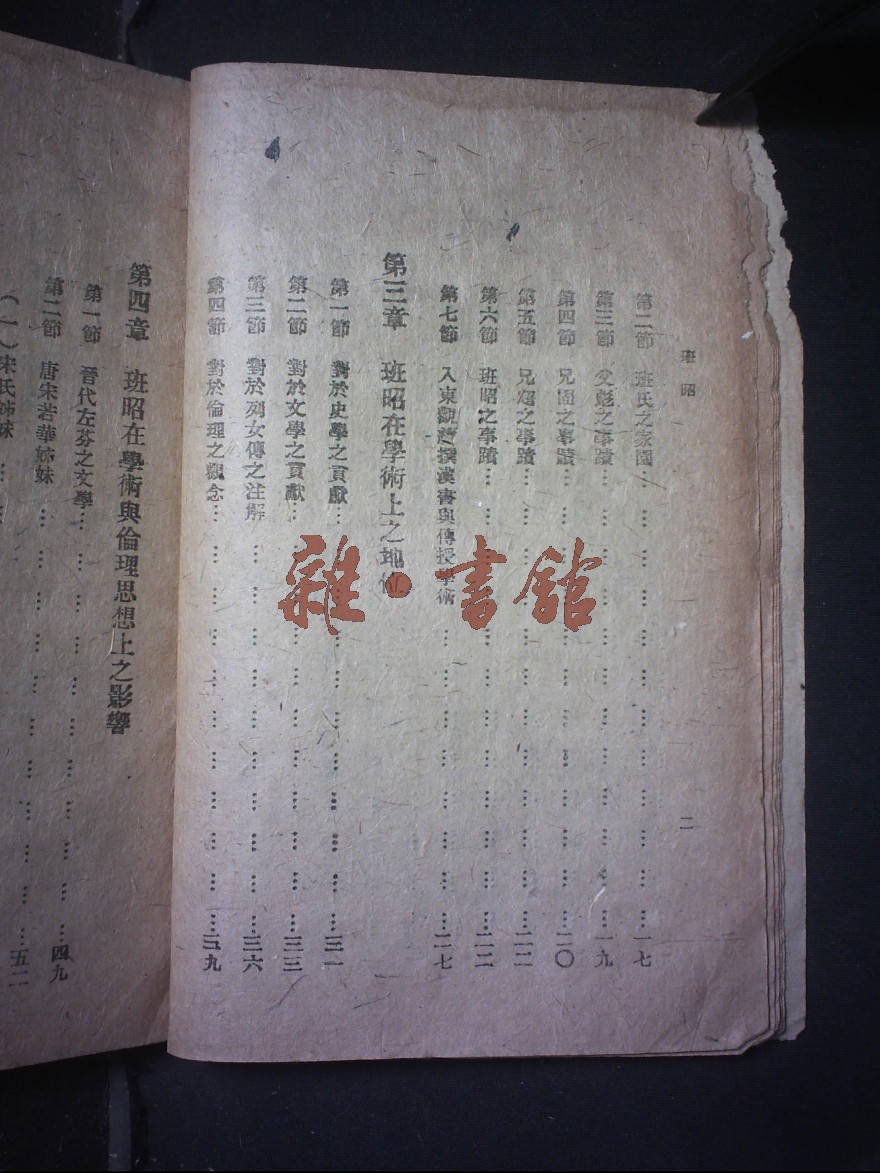 班昭
二
第二節 班氏之家園……一七
第三節 父彪之事蹟……一九
第四節 兄固之事蹟……二〇
第五節 兄超之事蹟……二二
第六節 班昭之事蹟……二二
第七節 入東觀續撰漢書與傳授學術……二七
第三章 班昭在學術上之地位
第一節 對於史學之貢獻……三一
第二節 對於文學之貢獻……三三
第三節 對於列女傳之注解……三六
第四節 對於倫理之觀念……三九
第四章 班昭在學術與倫理思想上之影響
第一節 晉代左芬之文學……四九
第二節 唐宋若華姊妹……五二
(一)宋氏姊妹
雜·書館